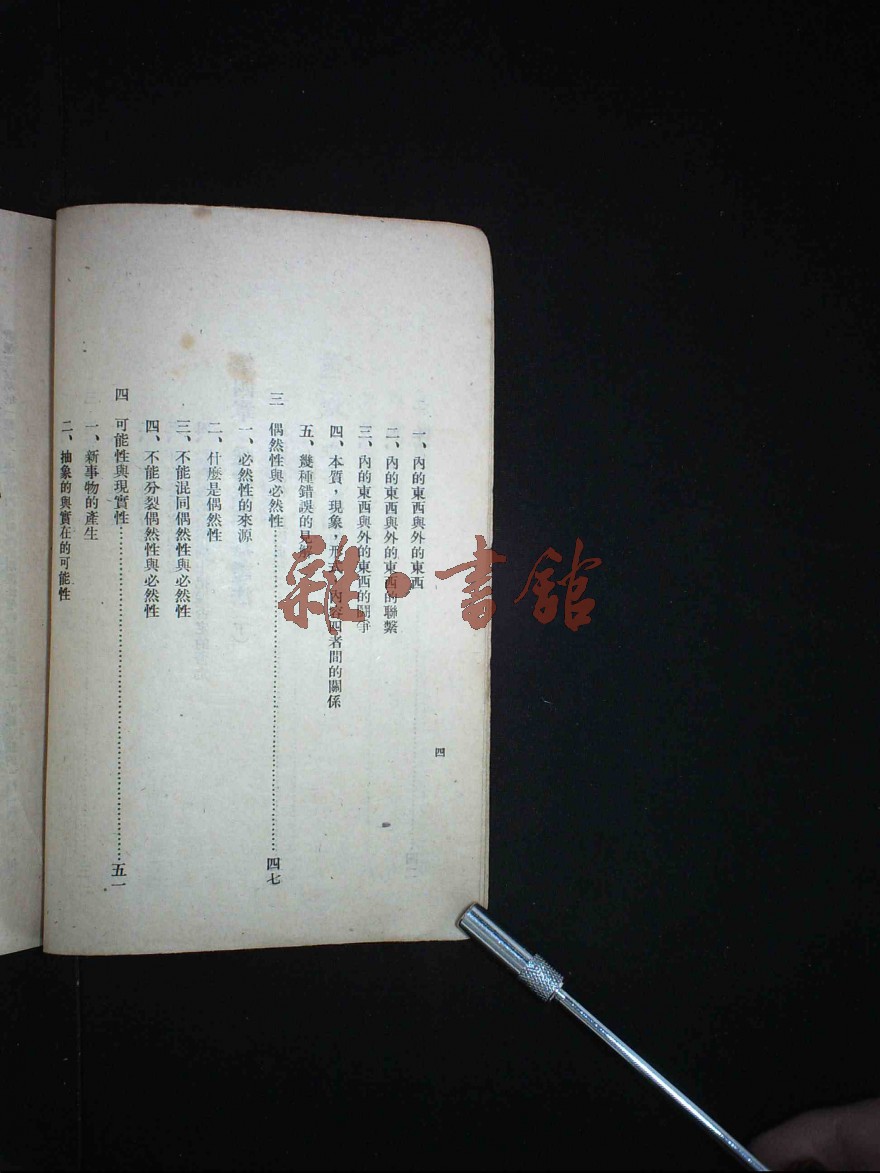 一、內的東西與外的東西
二、內的東西與外的東西的聯繫
三、內的東西與外的東西的鬭爭
四、本質，現象，形式，內容四者間的關係
五、幾種錯誤的見解
三　偶然性與必然性……四七
一、必然性的來源
二、什麼是偶然性
三、不能混同偶然性與必然性
四、不能分裂偶然性與必然性
四　可能性與現實性……五一
一、新事物的產生
二、抽象的與實在的可能性
四
雜·書館